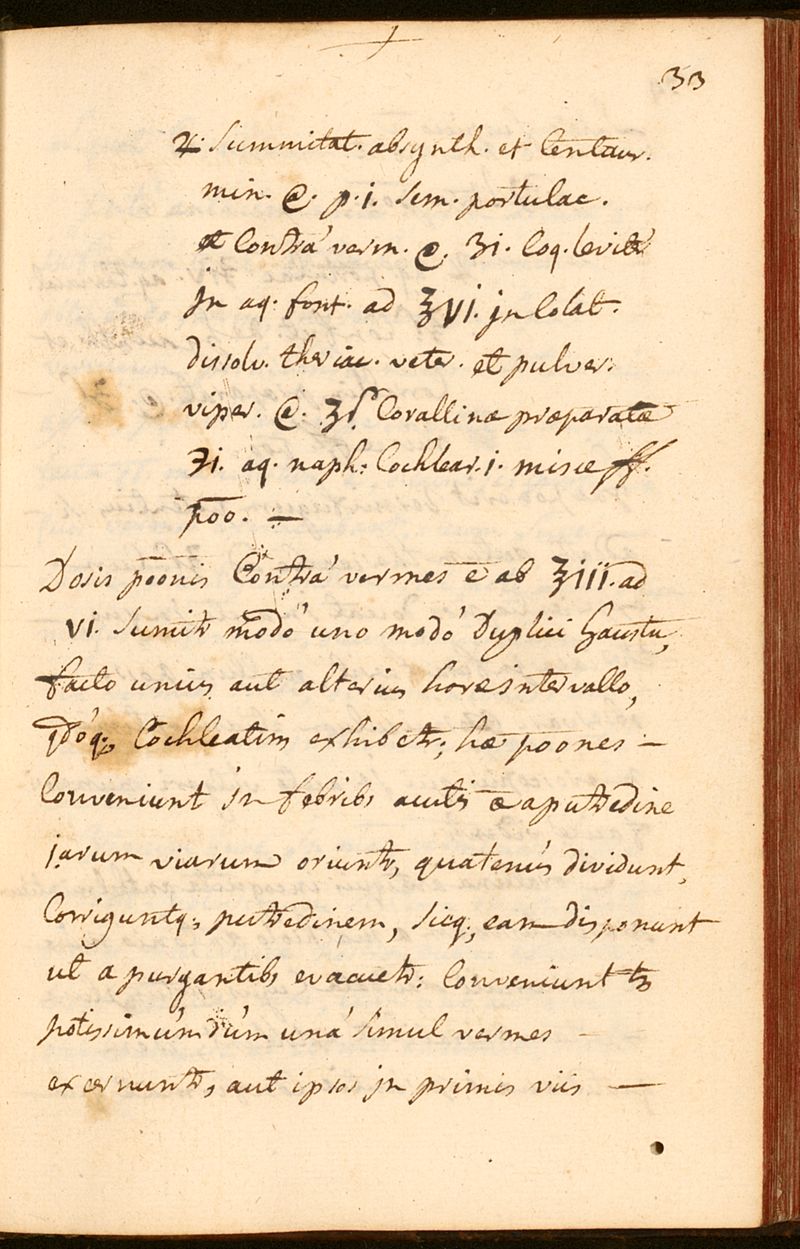 33
♃. Summitat. absynth. et Centaur.
min. @. p. i. sem. portulac.
et Contrá verm. @. ʒi. Coq. levitr
jn aq. font. ad ℥vi. jn Colat.
dissolv. theriac. veter. et pulver.
viper. @. ʒſs. Corallinæ præparatæ
ʒi. aq. naph: Cochlear. i. misce ff.
poo. —
Dosis poonis Contrá vermes e ab ℥iii. ad
vi. sumitr modó uno modó Duplici haustu,
facto unius aut alterius horæ intervallo,
qdóq; Cochleatim exhibetr; hæ poones —
Conveniunt in febribs acutis æ a putredine
j.arum viarum oriuntr, quatenús dividunt,
Corriguntq; putredinem, sicq; eam disponunt
ut a purgantibs evacuetr: Conveniunt
potissimúm dúm uná simul vermes —
excernuntr, aut ipsos jn primis viis —